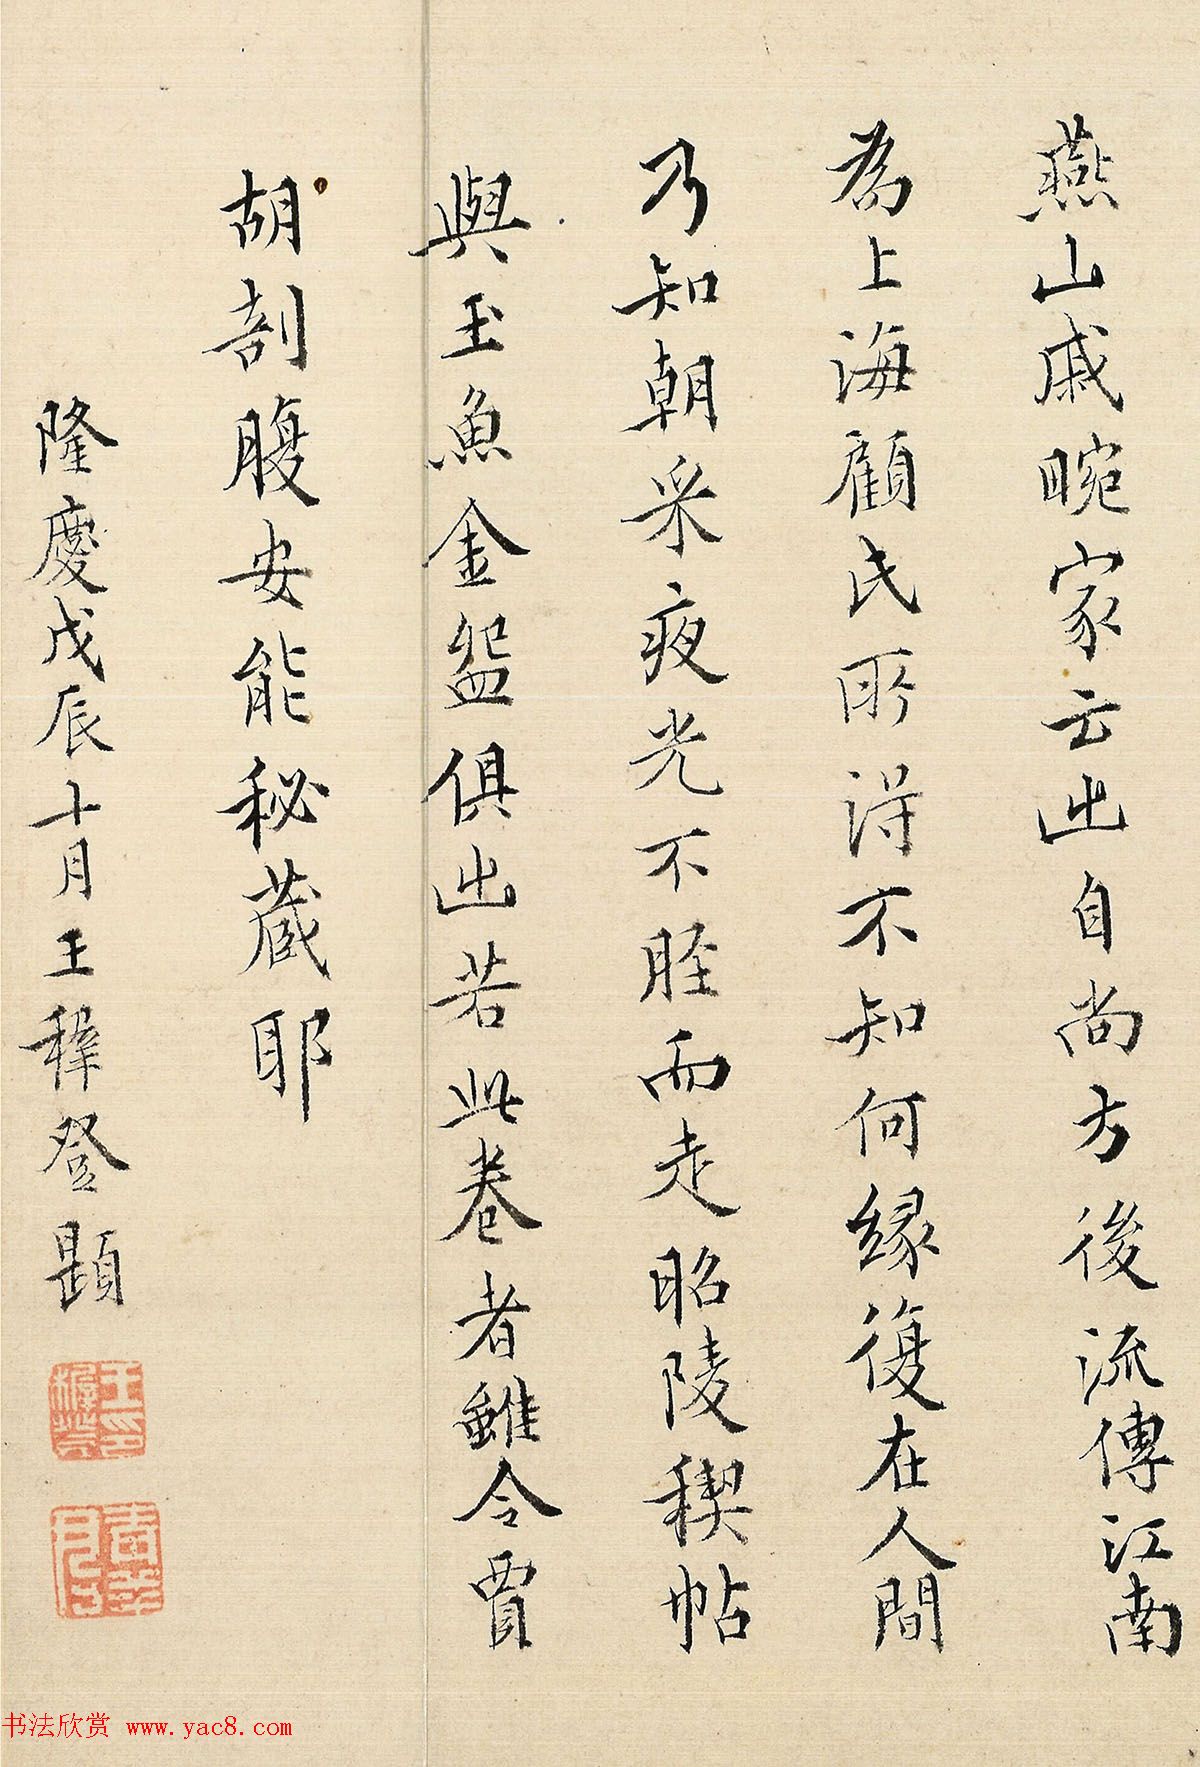 燕山戚畹家云出自尚方後流傳江南
為上海顧氏所得不知何緣復在人間
乃知朝采夜光不脛而走昭陵稧帖
與玉魚金盌俱出若此卷者雖令賈
胡剖腹安能秘藏耶
隆慶戊辰十月王穉登題
王穉登印
书法欣赏 www.yac8.com